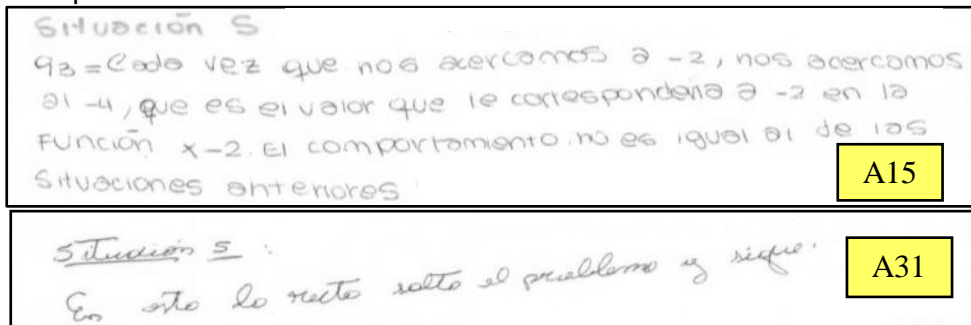 Situación 5
q3 = Cada vez que nos acercamos a -2, nos acercamos
al -4, que es el valor que le correspondería a -2 en la
Función x-2. El comportamiento no es igual al de las
Situaciones anteriores
A15
Situación 5:
En esto la recta salta el problema y sigue.
A31